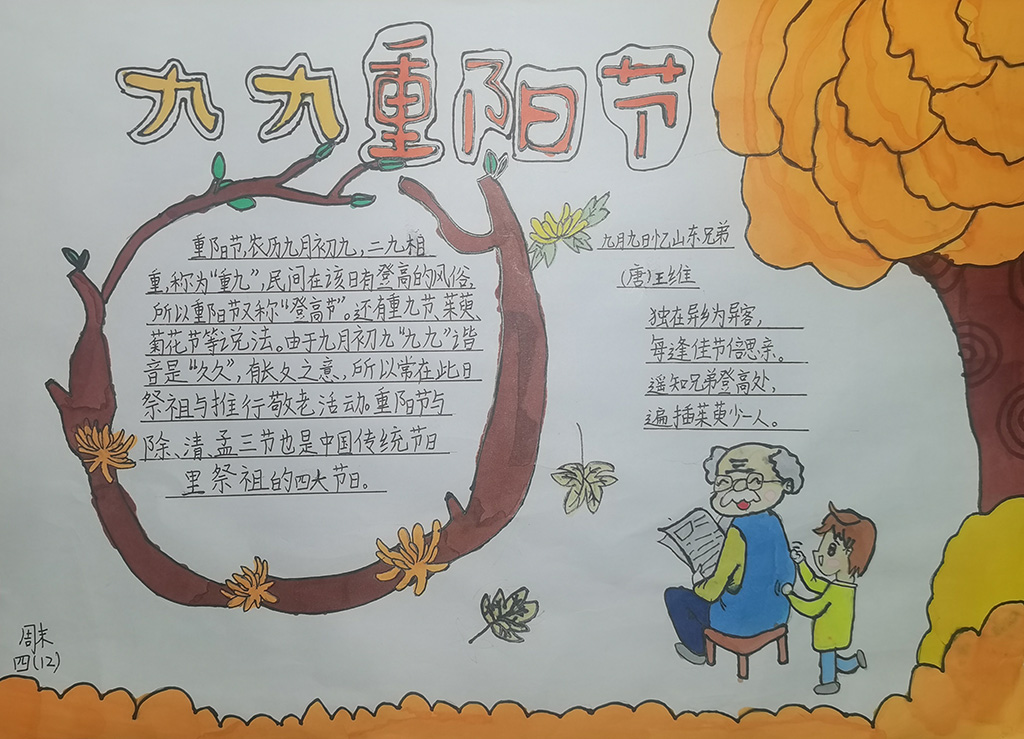 九九重阳节
重阳节,农历九月初九,二九相
重,称为“重九”,民间在该日有登高的风俗,
所以重阳节又称“登高节”。还有重九节、茱萸、
菊花节等说法。由于九月初九“九九”谐
音是“久久”,有长久之意,所以常在此日
祭祖与推行敬老活动。重阳节与
除、清、孟三节也是中国传统节日
里祭祖的四大节日。
九月九日忆山东兄弟
(唐)王维
独在异乡为异客,
每逢佳节倍思亲。
遥知兄弟登高处,
遍插茱萸少一人。
四(12)